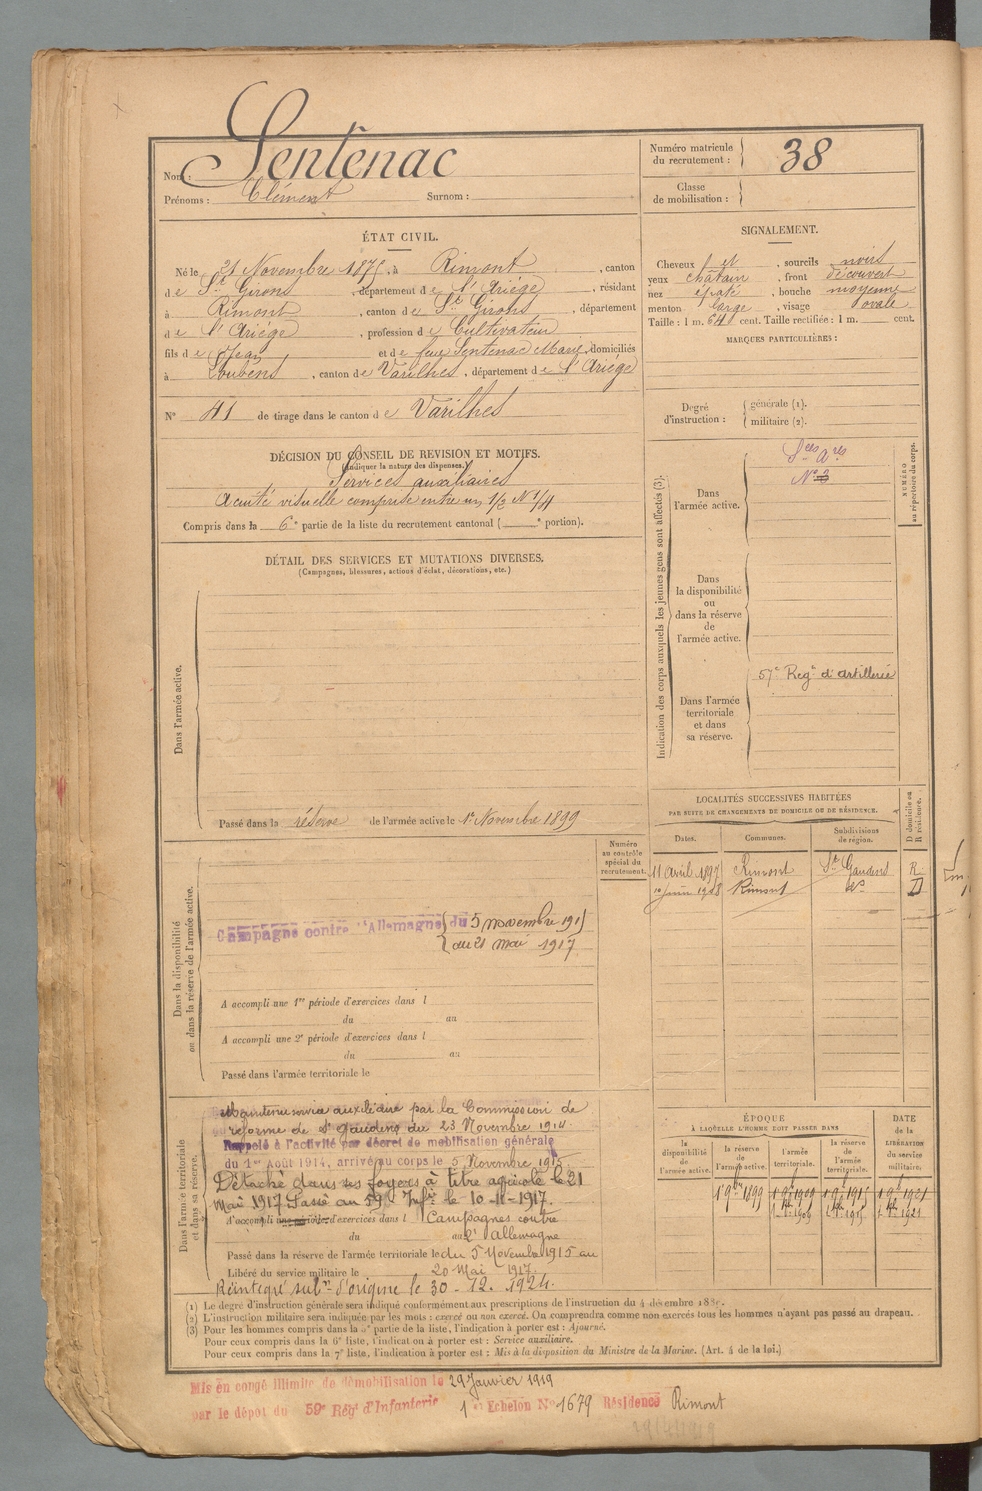 Nom : Sentenac
Prénoms : Clément Surnom :
Numéro matricule
du recrutement : 38
Classe
de mobilisation :
ÉTAT CIVIL.
Né le 21 Novembre 1875, à Rimont, canton
de St Girons, département de l'Ariége, résidant
à Rimont, canton de St Girons, département
de l'Ariége, profession de Cultivateur
fils de Jean et de feue Sentenac Marie, domiciliés
à Loubens, canton de Varilhes, département de l'Ariége
N° 41 de tirage dans le canton de Varilhes
SIGNALEMENT.
Cheveux et, sourcils noirs
yeux chatain, front découvert
nez épaté, bouche moyenne
menton large, visage ovale
Taille : 1 m. 64 cent. Taille rectifiée : 1 m. cent.
MARQUES PARTICULIÈRES :
Degré
d'instruction :
générale (1).
militaire (2).
DÉCISION DU CONSEIL DE REVISION ET MOTIFS.
(Indiquer la nature des dispenses.)
Services auxiliaires
Acuité visuelle comprise entre un 1/2 et 1/4
Compris dans la 6e partie de la liste du recrutement cantonal ( e portion).
DÉTAIL DES SERVICES ET MUTATIONS DIVERSES.
(Campagnes, blessures, actions d'éclat, décorations, etc.)
Dans l'armée active.
Passé dans la réserve de l'armée active le 1er Novembre 1899
Indication des corps auxquels les jeunes gens sont affectés (3).
NUMÉRO
au répertoire du corps.
Dans
l'armée active.
Sces Ares
N° 2
Dans
la disponibilité
ou
dans la réserve
de
l'armée active.
Dans l'armée
territoriale
et dans
sa réserve.
57e Regt d'artillerie
LOCALITÉS SUCCESSIVES HABITÉES
PAR SUITE DE CHANGEMENTS DE DOMICILE OU DE RÉSIDENCE.
D domicile ou
R résidence.
Dates. Communes. Subdivisions
de région.
11 avril 1897 Rimont St Gaudens R
1er juin 1908 Rimont do D
Dans la disponibilité
ou dans la réserve de l'armée active.
Numéro
au contrôle
spécial du
recrutement.
Campagne contre l'Allemagne du 5 novembre 1915
au 21 mai 1917
A accompli une 1re période d'exercices dans l
du au
A accompli une 2e période d'exercices dans l
du au
Passé dans l'armée territoriale le
Dans l'armée territoriale
et dans sa réserve.
Maintenu service auxiliaire par la Commission de
réforme de St Gaudens du 23 Novembre 1914.
Rappelé à l'activité par décret de mobilisation générale
du 1er Août 1914, arrivé au corps le 5 Novembre 1915
Détaché dans ses foyers à titre agricole le 21
mai 1917. Passé au 59e Infie le 10-11-1917.
A accompli une période d'exercices dans l Campagnes contre
du au l'Allemagne
Passé dans la réserve de l'armée territoriale le du 5 Novembre 1915 au
Libéré du service militaire le 20 Mai 1917.
Réintegré subon d'origine le 30-12.1924.
ÉPOQUE
À LAQUELLE L'HOMME DOIT PASSER DANS
DATE
de la
LIBÉRATION
du service
militaire.
la
disponibilité
de
l'armée active.
la réserve
de
l'armée active.
l'armée
territoriale.
la réserve
de
l'armée
territoriale.
1er 9bre 1899 1er 9bre 1909 1er 9bre 1915 1er 9bre 1921
(1) Le degré d'instruction générale sera indiqué conformément aux prescriptions de l'instruction du 4 décembre 1889.
(2) L'instruction militaire sera indiquée par les mots : exercé ou non exercé. On comprendra comme non exercés tous les hommes n'ayant pas passé au drapeau.
(3) Pour les hommes compris dans la 5e partie de la liste, l'indication à porter est : Ajourné.
Pour ceux compris dans la 6e liste, l'indication à porter est : Service auxiliaire.
Pour ceux compris dans la 7e liste, l'indication à porter est : Mis à la disposition du Ministre de la Marine. (Art. 4 de la loi.)
Mis en congé illimité de démobilisation le 29 Janvier 1919
par le dépot du 59e Régt d'Infanterie 1er Echelon N° 1679 Résidence Rimont